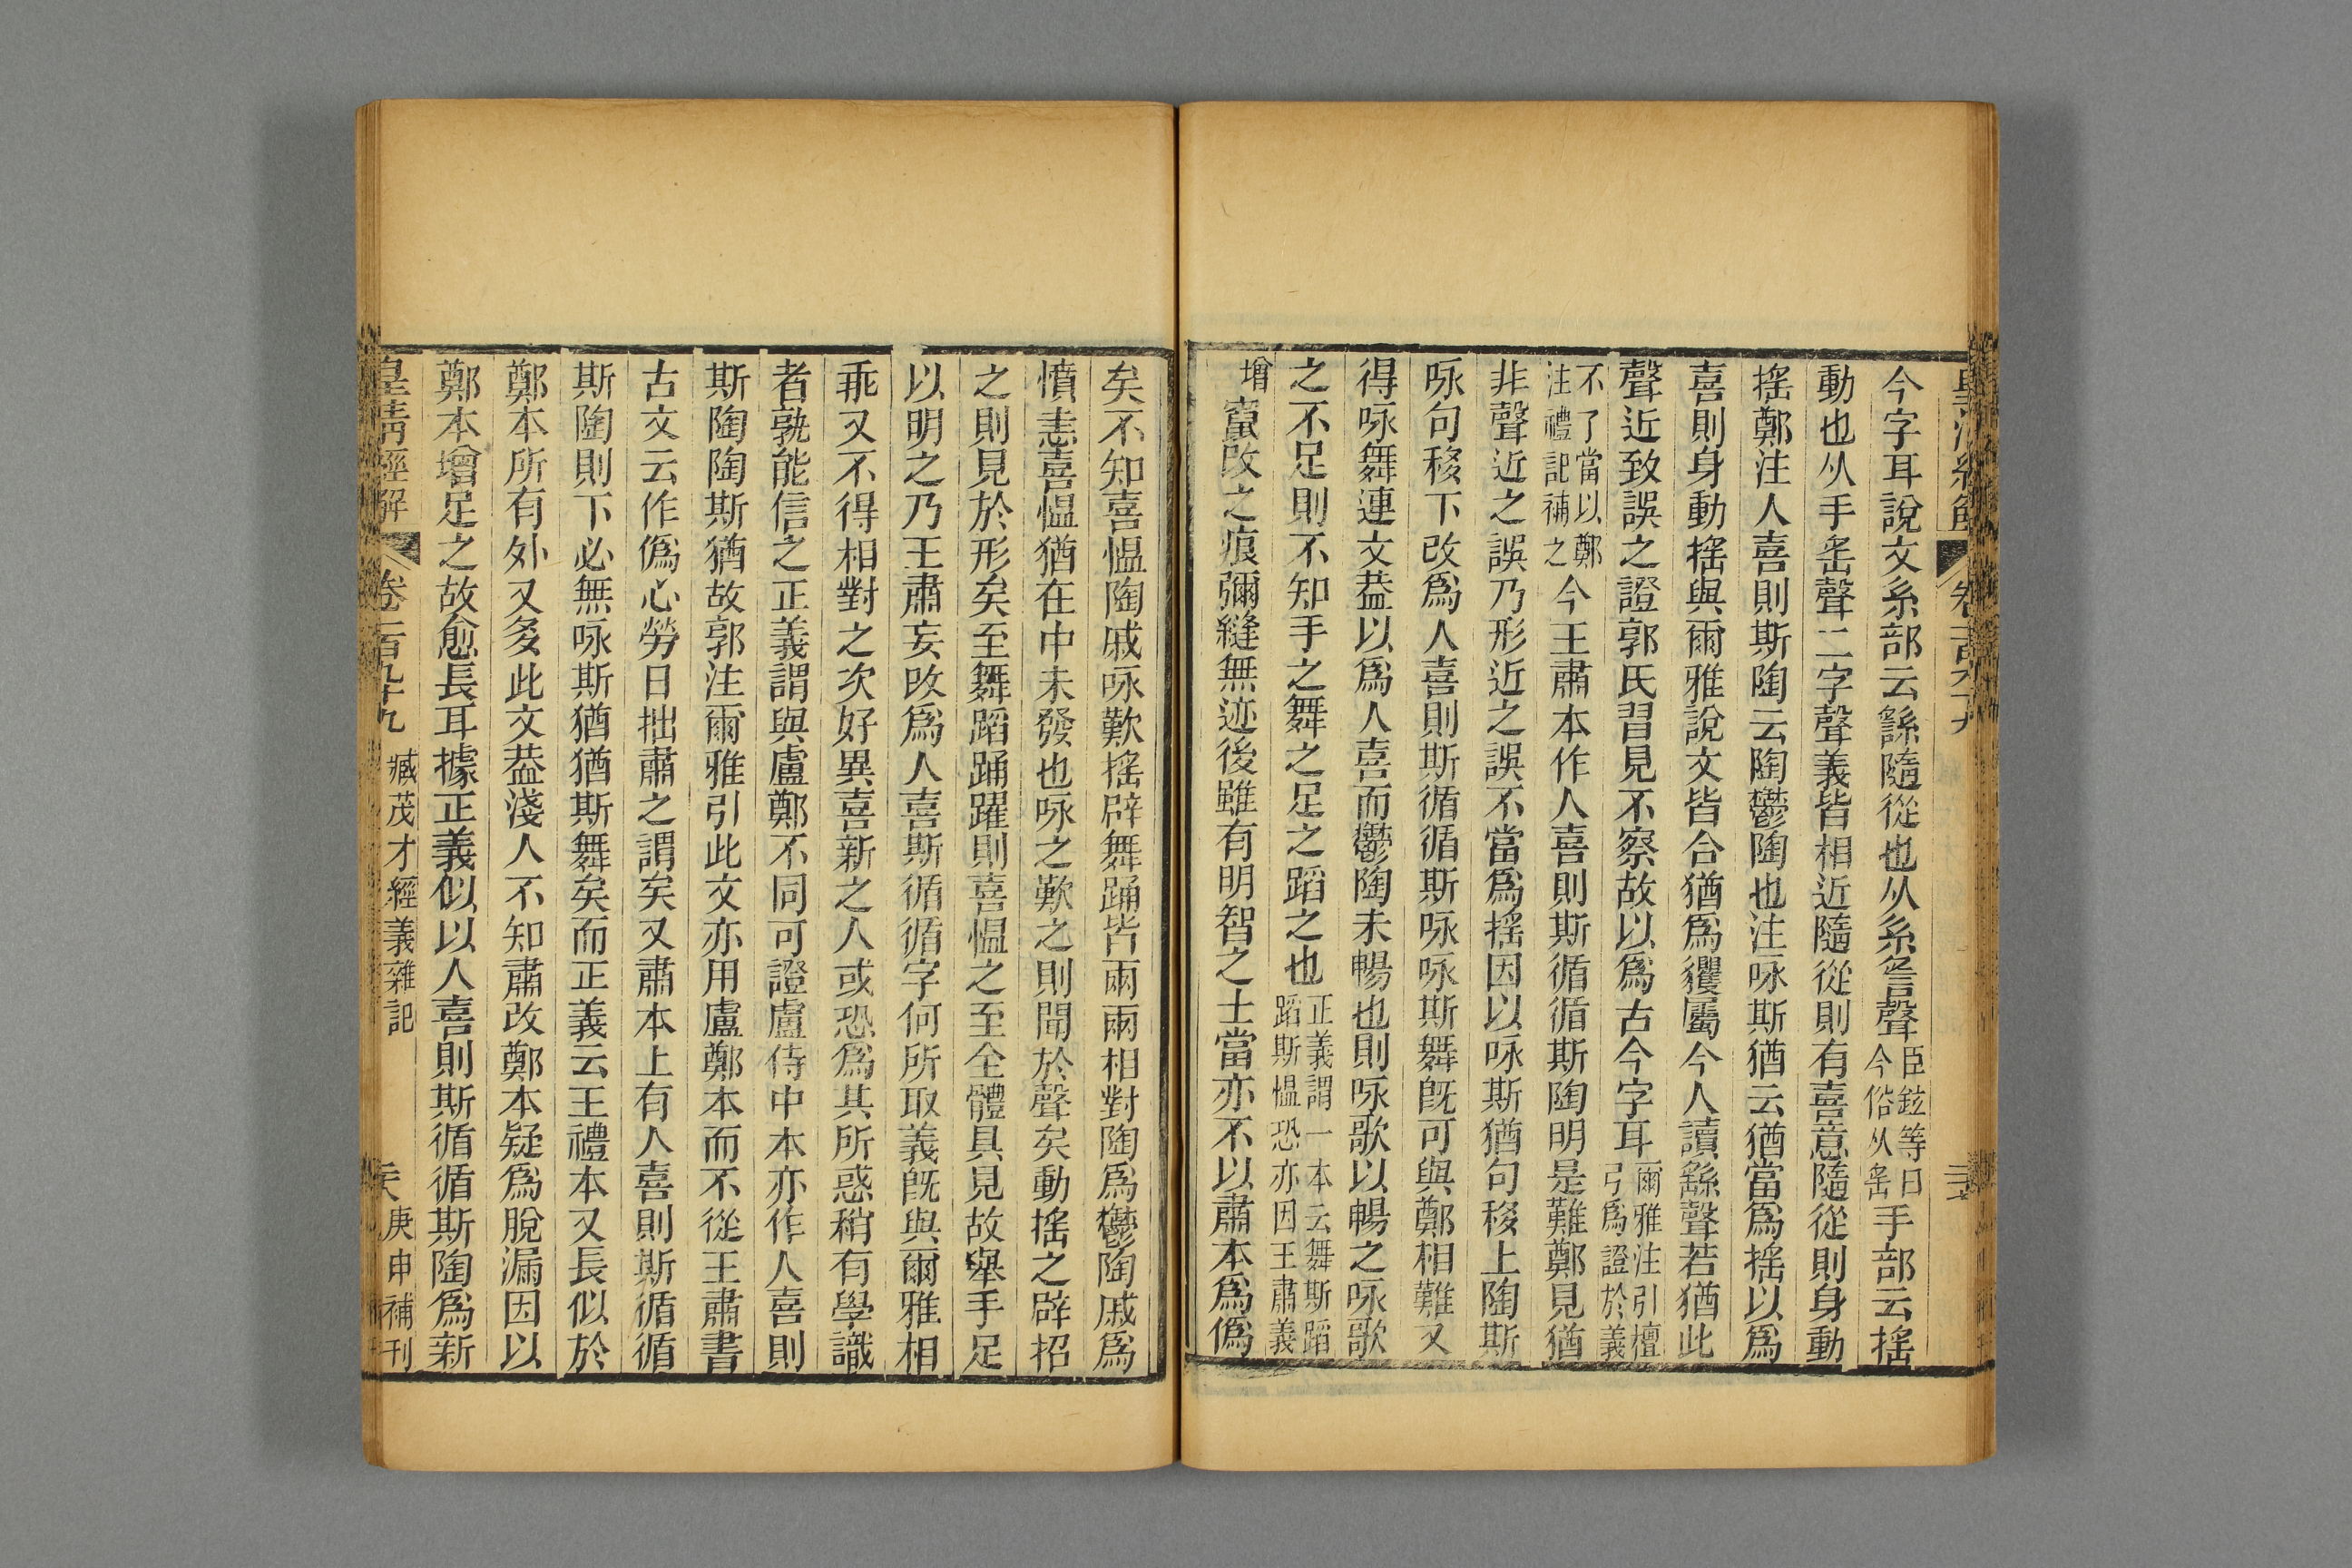 今字耳說文系部云繇隨從也从系䚻聲臣鉉等曰今俗从䍃手部云搖
動也从手䍃聲二字聲義皆相近隨從則有喜意隨從則身動
搖鄭注人喜則斯陶云陶鬱陶也注咏斯猶云猶當爲搖以爲
喜則身動搖與爾雅說文皆合猶爲玃屬今人讀繇聲若猶此
聲近致誤之證郭氏習見不察故以爲古今字耳爾雅注引檀弓爲證於義
不了當以鄭注禮記補之今王肅本作人喜則斯循循斯陶明是難鄭見猶
非聲近之誤乃形近之誤不當爲搖因以咏斯猶句移上陶斯
咏句移下改爲人喜則斯循循斯咏咏斯舞旣可與鄭相難又
得咏舞連文葢以爲人喜而鬱陶未暢也則咏歌以暢之咏歌
之不足則不知手之舞之足之蹈之也正義謂一本云舞斯蹈蹈斯慍恐亦因王肅義
增竄改之痕彌縫無迹後雖有明智之士當亦不以肅本爲僞
矣不知喜慍陶戚咏歎搖辟舞踊皆兩兩相對陶爲鬱陶戚爲
憤恚喜慍猶在中未發也咏之歎之則聞於聲矣動搖之辟招
之則見於形矣至舞蹈踊躍則喜慍之至全體具見故舉手足
以明之乃王肅妄改爲人喜斯循循字何所取義旣與爾雅相
乖又不得相對之次好異喜新之人或恐爲其所惑稍有學識
者孰能信之正義謂與盧鄭不同可證盧侍中本亦作人喜則
斯陶陶斯猶故郭注爾雅引此文亦用盧鄭本而不從王肅書
古文云作僞心勞日拙肅之謂矣又肅本上有人喜則斯循循
斯陶則下必無咏斯猶猶斯舞矣而正義云王禮本又長似於
鄭本所有外又多此文葢淺人不知肅改鄭本疑爲脫漏因以
鄭本增足之故愈長耳據正義似以人喜則斯循循斯陶爲新
皇淸經解 卷一百九十九 臧茂才經義雜記 庚申補刊